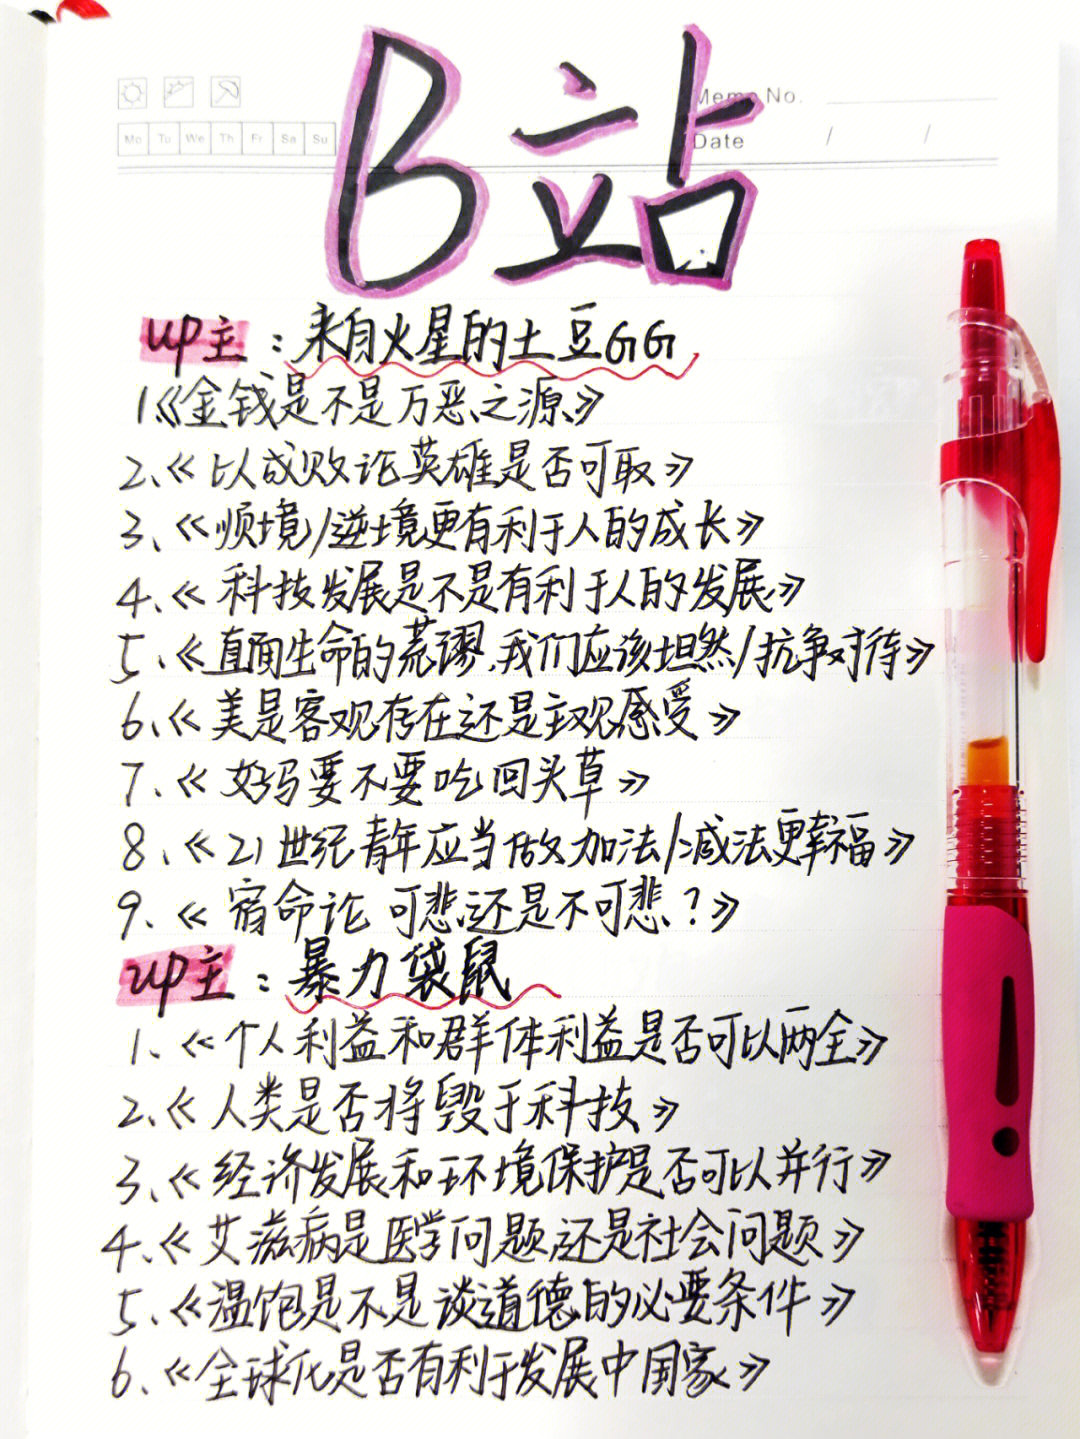 B站
Memo No.
Mo Tu We Th Fr Sa Su
Date / /
up主：来自火星的土豆GG
1《金钱是不是万恶之源》
2、《以成败论英雄是否可取》
3、《顺境/逆境更有利于人的成长》
4、《科技发展是不是有利于人的发展》
5、《直面生命的荒谬,我们应该坦然/抗争对待》
6、《美是客观存在还是主观感受》
7、《好马要不要吃回头草》
8、《21世纪青年应当做加法/减法更幸福》
9、《宿命论 可悲还是不可悲？》
up主：暴力袋鼠
1、《个人利益和群体利益是否可以两全》
2、《人类是否将毁于科技》
3、《经济发展和环境保护是否可以并行》
4、《艾滋病是医学问题,还是社会问题》
5、《温饱是不是谈道德的必要条件》
6、《全球化是否有利于发展中国家》